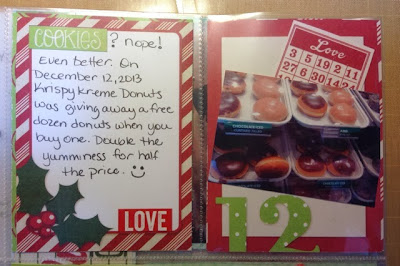 COOKIES ? nope!
Even better. On
December 12, 2013
Krispy Kreme Donuts
was giving away a free
dozen donuts when you
buy one. Double the
yumminess for half
the price.
LOVE
Love
3 19 2 11
27 6 30 14
12